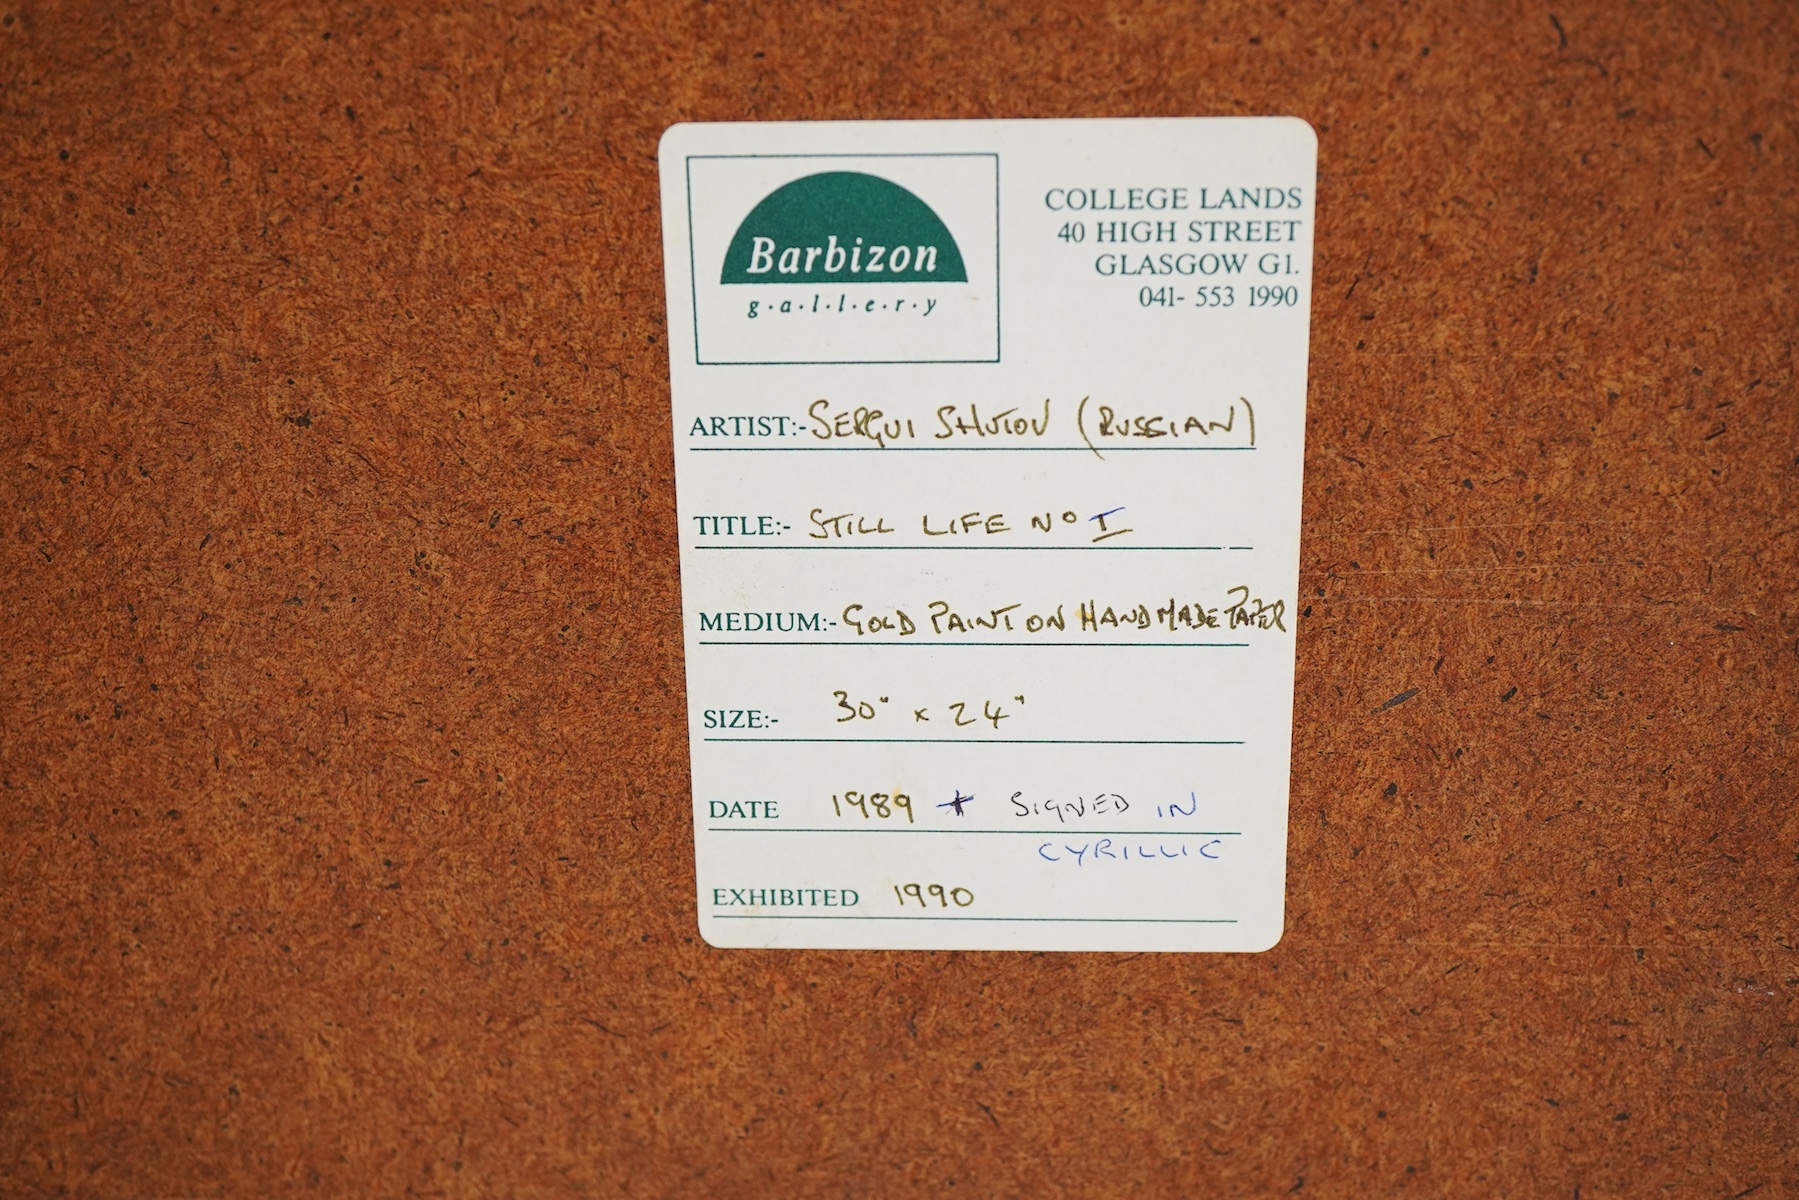 Barbizon
g·a·l·l·e·r·y
COLLEGE LANDS
40 HIGH STREET
GLASGOW G1.
041- 553 1990
ARTIST:- SERGUI SHUTOV (RUSSIAN)
TITLE:- STILL LIFE Nº I
MEDIUM:- GOLD PAINT ON HANDMADE PAPER
SIZE:- 30" x 24"
DATE 1989 * SIGNED IN
CYRILLIC
EXHIBITED 1990